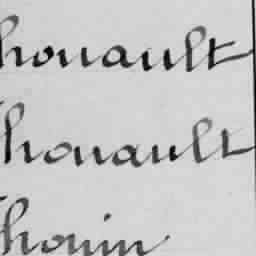 houault
houault
houin